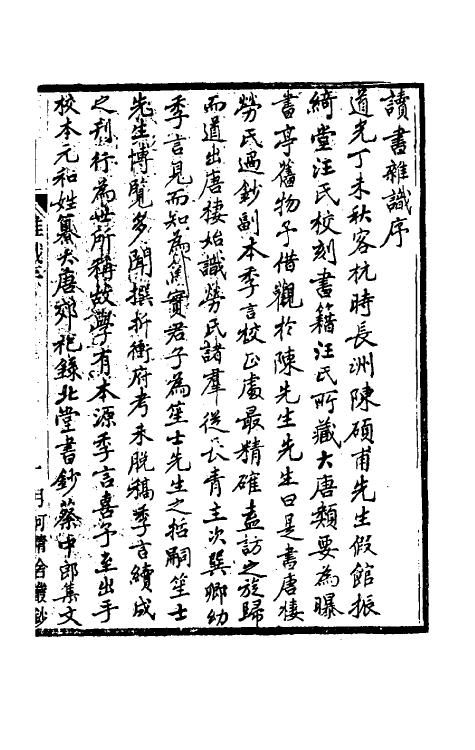 讀書雜識序
道光丁未秋客杭時長洲陳碩甫先生假館振
綺堂汪氏校刻書籍汪氏所藏大唐類要為曝
書亭舊物予借觀於陳先生先生曰是書唐棲
勞氏過鈔副本季言校正處最精確盍訪之旋歸
而道出唐棲始識勞氏諸羣從長青主次巽卿幼
季言見而知為篤實君子為笙士先生之哲嗣笙士
先生博覽多聞撰折衝府考未脫稿季言續成
之刊行為世所稱故學有本源季言喜予至出手
校本元和姓纂大唐郊祀錄北堂書鈔蔡中郎集文
月河精舍叢鈔